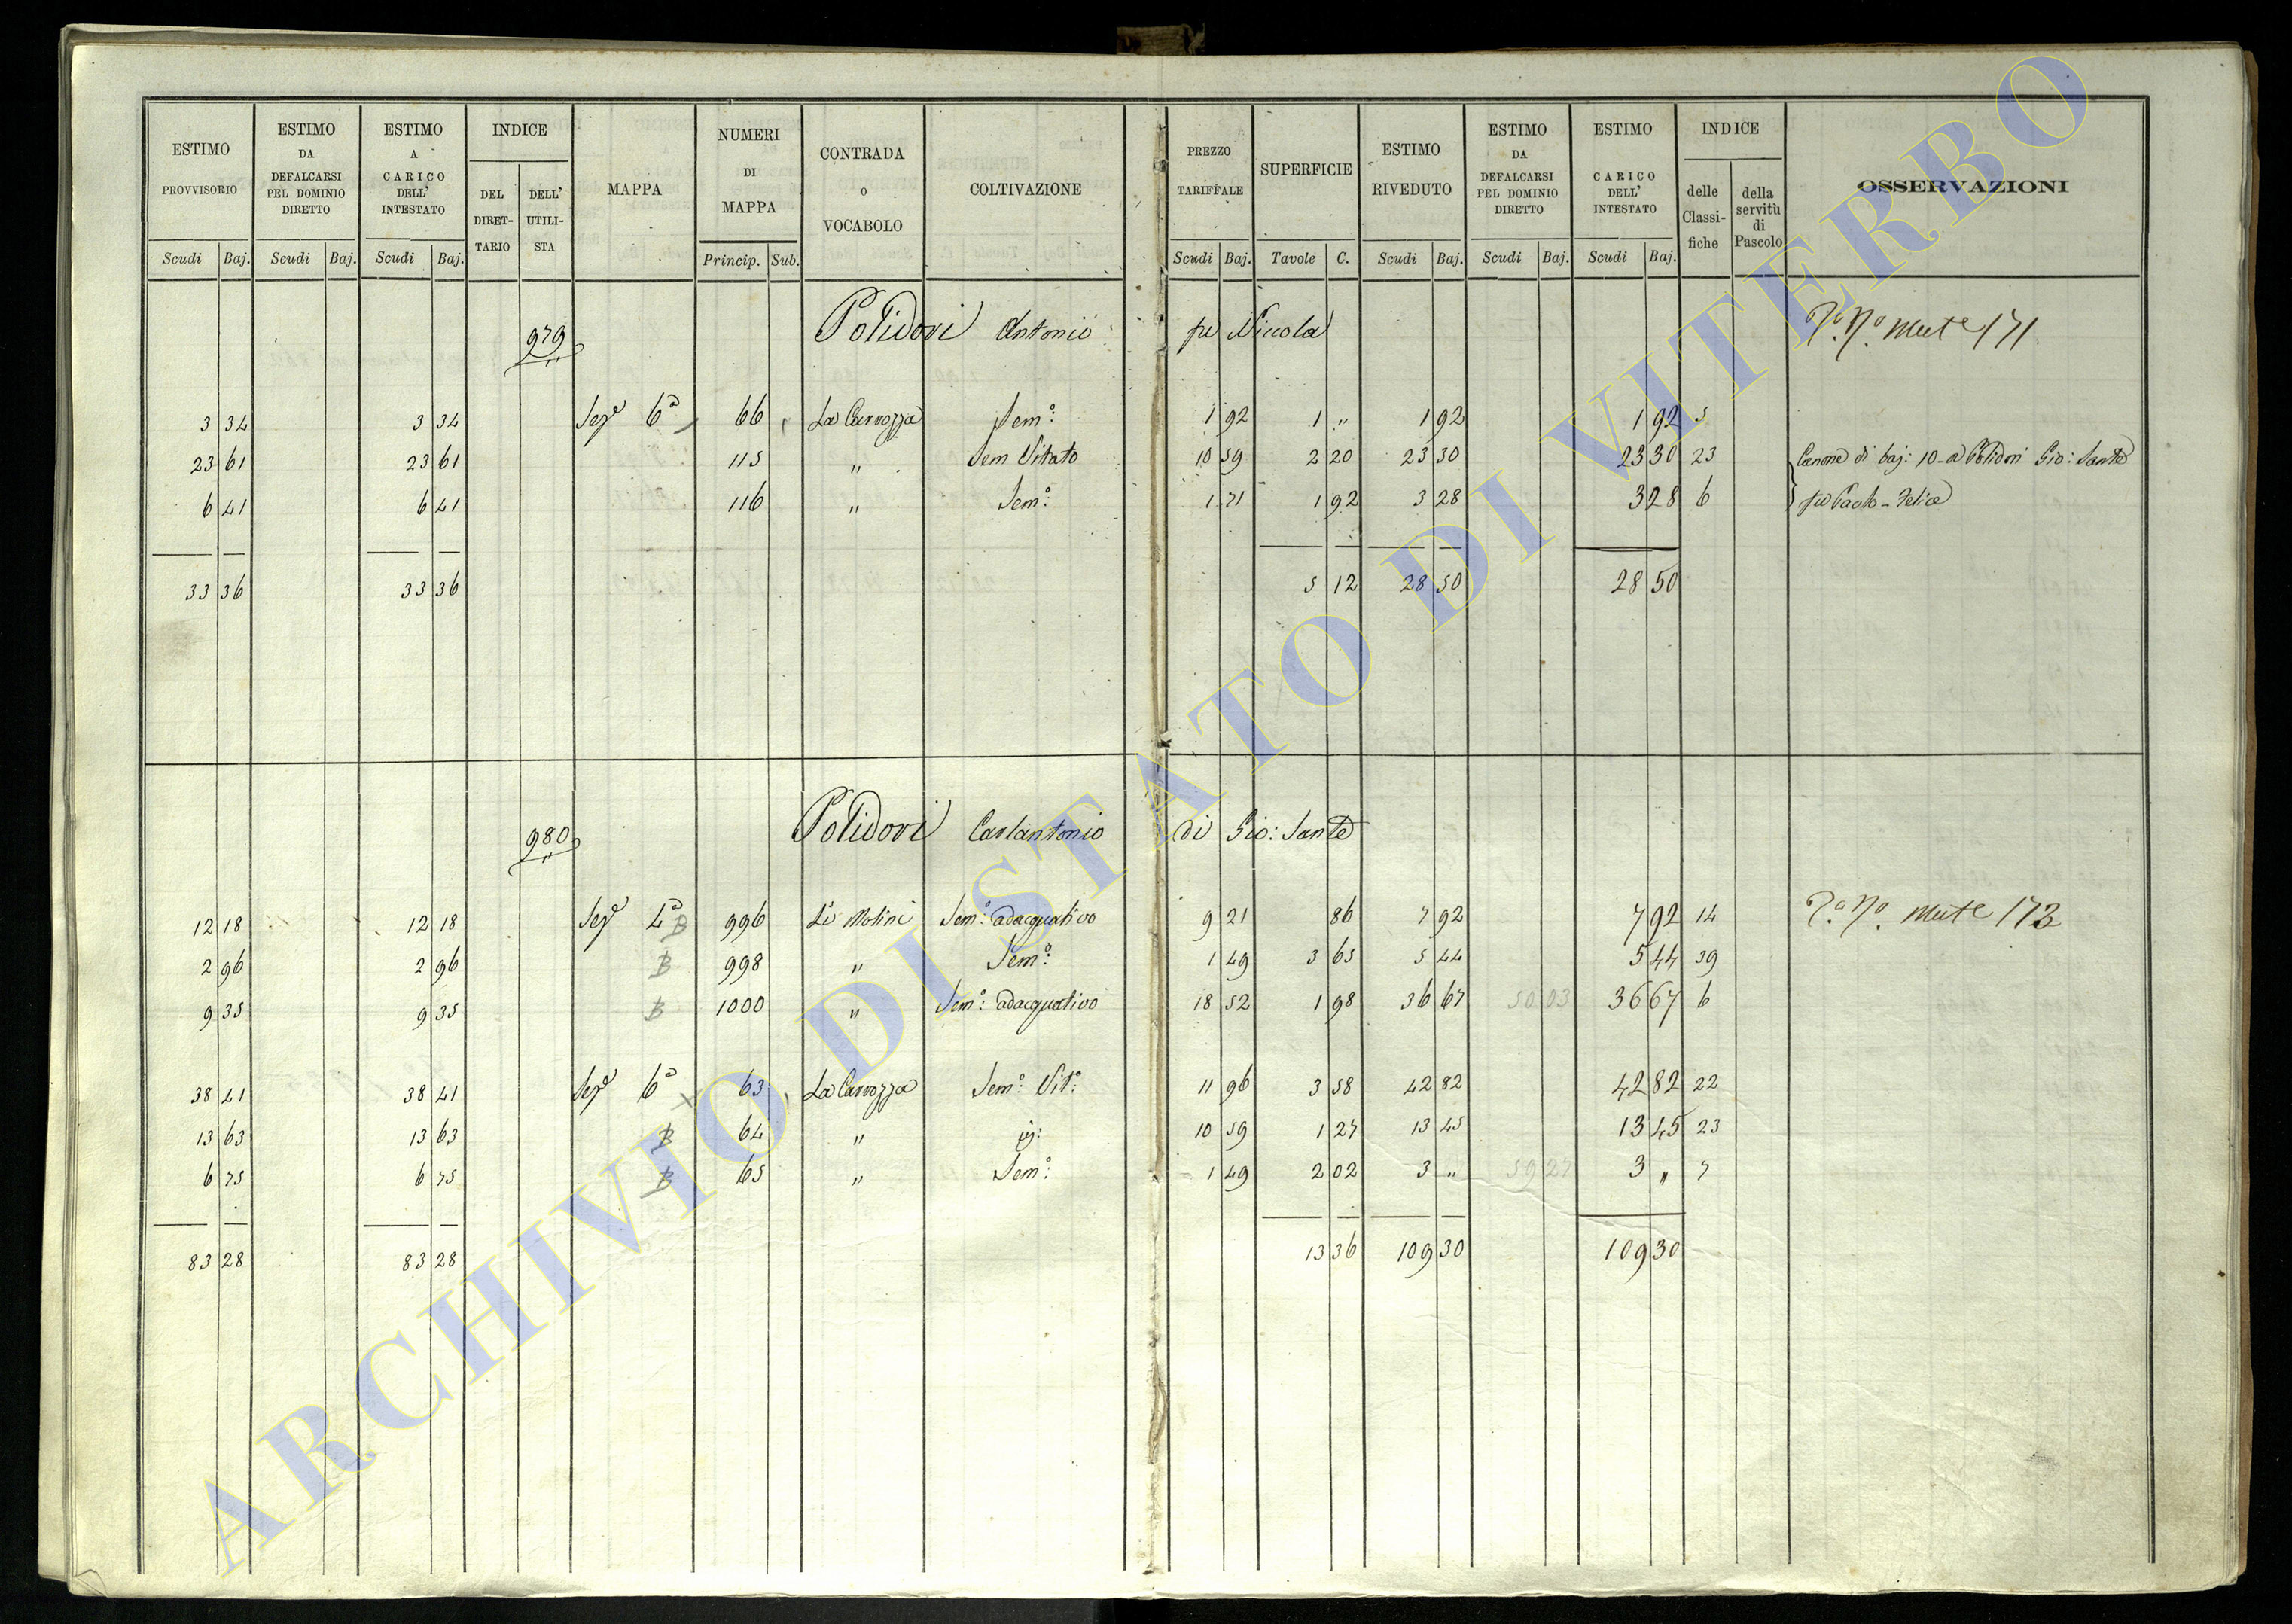 ESTIMO PROVVISORIO Scudi Baj.
ESTIMO DA DEFALCARSI PEL DOMINIO DIRETTO Scudi Baj.
ESTIMO A CARICO DELL' INTESTATO Scudi Baj.
INDICE DEL DIRET-TARIO DELL' UTILI-STA
MAPPA
NUMERI DI MAPPA Princip. Sub.
CONTRADA o VOCABOLO
COLTIVAZIONE
PREZZO TARIFFALE Scudi Baj.
SUPERFICIE Tavole C.
ESTIMO RIVEDUTO Scudi Baj.
ESTIMO DA DEFALCARSI PEL DOMINIO DIRETTO Scudi Baj.
ESTIMO A CARICO DELL' INTESTATO Scudi Baj.
INDICE delle Classi-fiche della servitù di Pascolo
OSSERVAZIONI
979 Polidori Antonio fu Niccola mute 171
3 34 3 34 Sezе 6a 66 La Carrozza Semo: 1 92 1 " 1 92 1 92 5
23 61 23 61 115 " Sem Vitato 10 59 2 20 23 30 23 30 23 Canone di baj: 10 a Polidori Gio: Sante
6 41 6 41 116 " Semo: 1 71 1 92 3 28 3 28 6 fu Paolo - Felice
33 36 33 36 5 12 28 50 28 50
980 Polidori Carlantonio di Gio: Sante
12 18 12 18 Seze 4a B 996 Li Molini Semo: adacquativo 9 21 86 7 92 7 92 14 mute 172
2 96 2 96 B 998 " Semo: 1 49 3 65 5 44 5 44 39
9 35 9 35 B 1000 " Semo: adacquativo 18 52 1 98 36 67 50 03 36 67 6
38 41 38 41 Seze 6a x 63 La Carrozza Semo: Vito: 11 96 3 58 42 82 42 82 22
13 63 13 63 B 64 " 10 59 1 27 13 45 13 45 23
6 75 6 75 B 65 " Semo: 1 49 2 02 3 " 59 27 3 " 7
83 28 83 28 13 36 109 30 109 30
ARCHIVIO DI STATO DI VITERBO